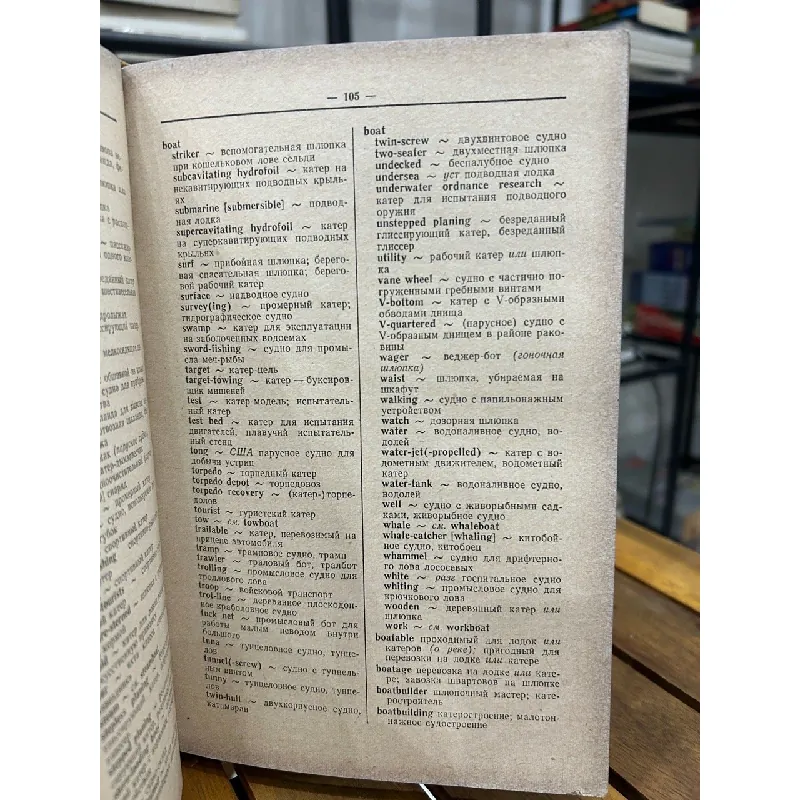 — 105 —
boat
striker ~ вспомогательная шлюпка
при кошельковом лове сельди
subcavitating hydrofoil ~ катер на
некавитирующих подводных крыль-
ях
submarine [submersible] ~ подвод-
ная лодка
supercavitating hydrofoil ~ катер
на суперкавитирующих подводных
крыльях
surf ~ прибойная шлюпка; берего-
вая спасательная шлюпка; берего-
вой рабочий катер
surface ~ надводное судно
survey(ing) ~ промерный катер;
гидрографическое судно
swamp ~ катер для эксплуатации
на заболоченных водоемах
sword-fishing ~ судно для промы-
сла меч-рыбы
target ~ катер-цель
target-towing ~ катер — буксиров-
щик мишеней
test ~ катер-модель; испытатель-
ный катер
test bed ~ катер для испытания
двигателей, плавучий испытатель-
ный стенд
tong ~ США парусное судно для
добычи устриц
torpedo ~ торпедный катер
torpedo depot ~ торпедовоз
torpedo recovery ~ (катер-)торпе-
долов
tourist ~ туристский катер
tow ~ см. towboat
trailable ~ катер, перевозимый на
прицепе автомобиля
tramp ~ трамповое судно, трамп
trawler ~ траловый бот, тралбот
trolling ~ промысловое судно для
троллового лова
troop ~ войсковой транспорт
trot-line ~ деревянное плоскодон-
ное краболовное судно
tuck net ~ промысловый бот для
работы малым неводом внутри
большого
tuna ~ тунцеловное судно, тунце-
лов
tunnel(-screw) ~ судно с туннель-
ным винтом
tunny ~ тунцеловное судно, тунце-
лов
twin-hull ~ двухкорпусное судно,
катамаран
boat
twin-screw ~ двухвинтовое судно
two-seater ~ двухместная шлюпка
undecked ~ беспалубное судно
undersea ~ уст подводная лодка
underwater ordnance research ~
катер для испытания подводного
оружия
unstepped planing ~ безреданный
глиссирующий катер, безреданный
глиссер
utility ~ рабочий катер или шлюп-
ка
vane wheel ~ судно с частично по-
груженными гребными винтами
V-bottom ~ катер с V-образными
обводами днища
V-quartered ~ (парусное) судно с
V-образным днищем в районе рако-
вины
wager ~ веджер-бот (гоночная
шлюпка)
waist ~ шлюпка, убираемая на
шкафут
walking ~ судно с папильонажным
устройством
watch ~ дозорная шлюпка
water ~ водоналивное судно, во-
долей
water-jet(-propelled) ~ катер с во-
дометным движителем, водометный
катер
water-tank ~ водоналивное судно,
водолей
well ~ судно с живорыбными сад-
ками, живорыбное судно
whale ~ см. whaleboat
whale-catcher [whaling] ~ китобой-
ное судно, китобоец
whammel ~ судно для дрифтерно-
го лова лососевых
white ~ разг госпитальное судно
whiting ~ промысловое судно для
крючкового лова
wooden ~ деревянный катер или
шлюпка
work ~ см workboat
boatable проходимый для лодок или
катеров (о реке); пригодный для
перевозки на лодке или катере
boatage перевозка на лодке или кате-
ре; завозка швартовов на шлюпке
boatbuilder шлюпочный мастер; кате-
ростроитель
boatbuilding катеростроение; малотон-
нажное судостроение